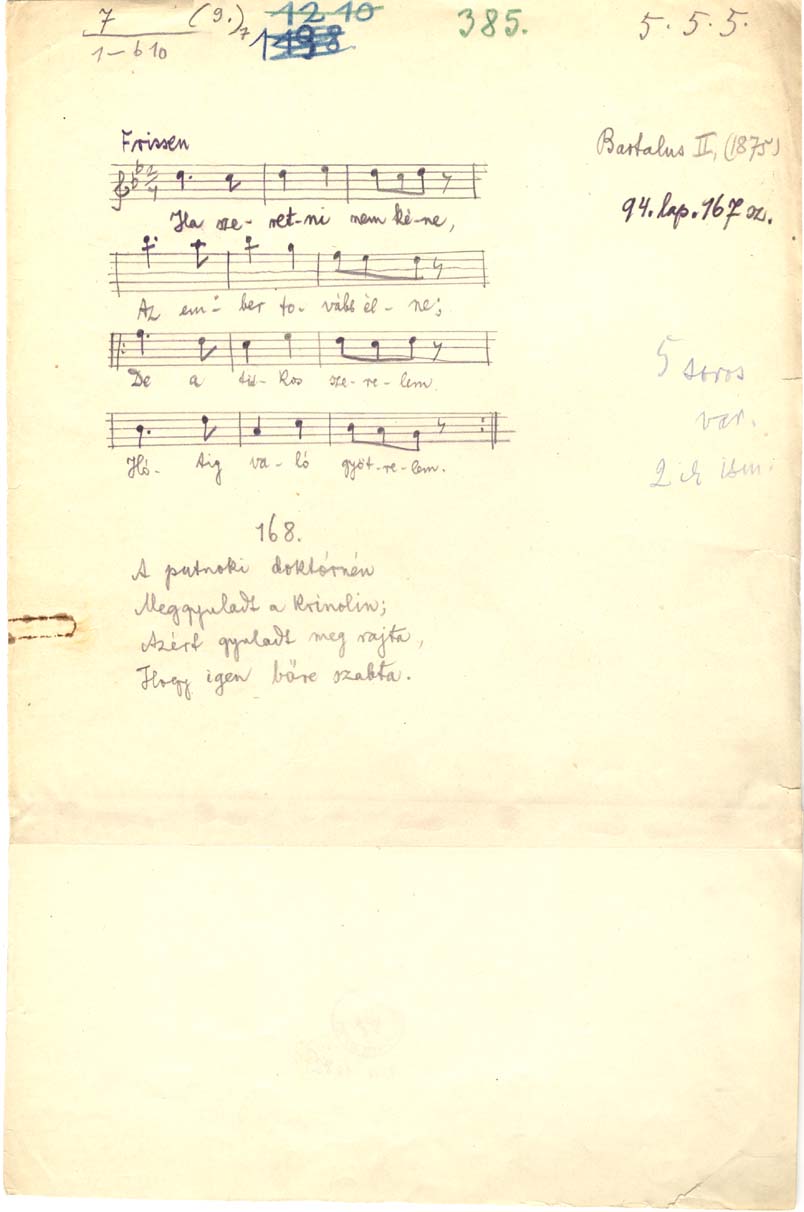 7 (9.)7 12-10 385. 5. 5. 5.
1-b10 1498
Frissen
Bartalus II, (1875)
94. lap. 167 sz.
2/4
Ha sze- ret-ni nem ké-ne,
Az em- ber to- vább él- ne;
De a tit- kos sze- re- lem
Hó- tig va- ló gyöt- re- lem.
5 soros
var.
168.
A putnoki doktórnén
Meggyuladt a krinolin;
Azért gyuladt meg rajta,
Hogy igen bőre szabta.